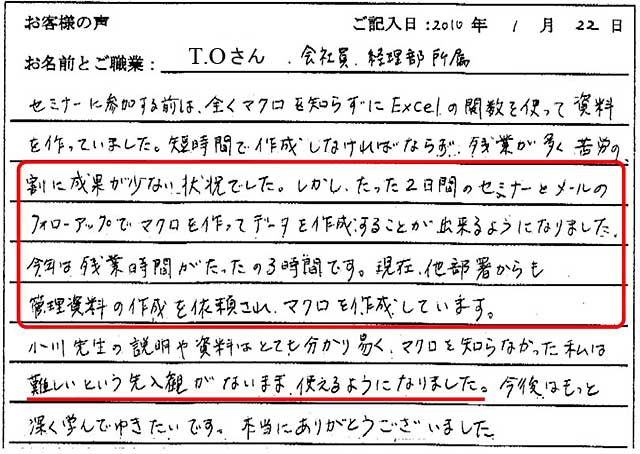 お客様の声 ご記入日:2010 年 1 月 22 日
お名前とご職業: T.Oさん . 会社員. 経理部所属
セミナーに参加する前は、全くマクロを知らずにExcelの関数を使って資料
を作っていました。短時間で作成しなければならず、残業が多く苦労の
割に成果が少ない状況でした。しかし、たった2日間のセミナーとメールの
フォローアップでマクロを作ってデータを作成することが出来るようになりました。
今年は残業時間がたったの3時間です。現在、他部署からも
管理資料の作成を依頼され、マクロを作成しています。
小川先生の説明や資料はとても分かり易く、マクロを知らなかった私は
難しいという先入観がないまま、使えるようになりました。今後はもっと
深く学んでゆきたいです。本当にありがとうございました